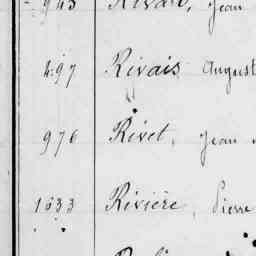 943 Jean
497 Rivais August
976 Rivet, Jean
1633 Rivière, Pierre